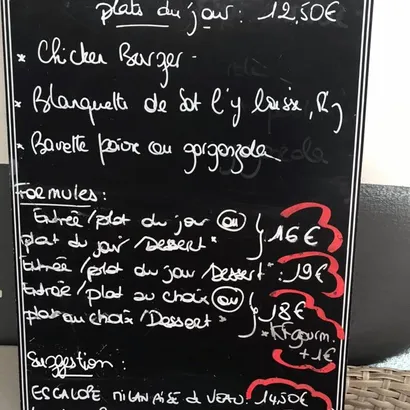 plats du jour : 12,50€
* Chicken Burger
* Blanquette de Sot l'y laisse, Riz
* Bavette poivre ou gorgonzola
Formules :
Entrée/plat du jour ou
plat du jour/Dessert* } 16€
Entrée/plat du jour/Dessert* : 19€
Entrée/plat au choix ou
plat au choix/Dessert* } 18€
* Kfgourm.
+1€
Suggestion :
ESCALOPE MILANAISE de VEAU : 14,50€